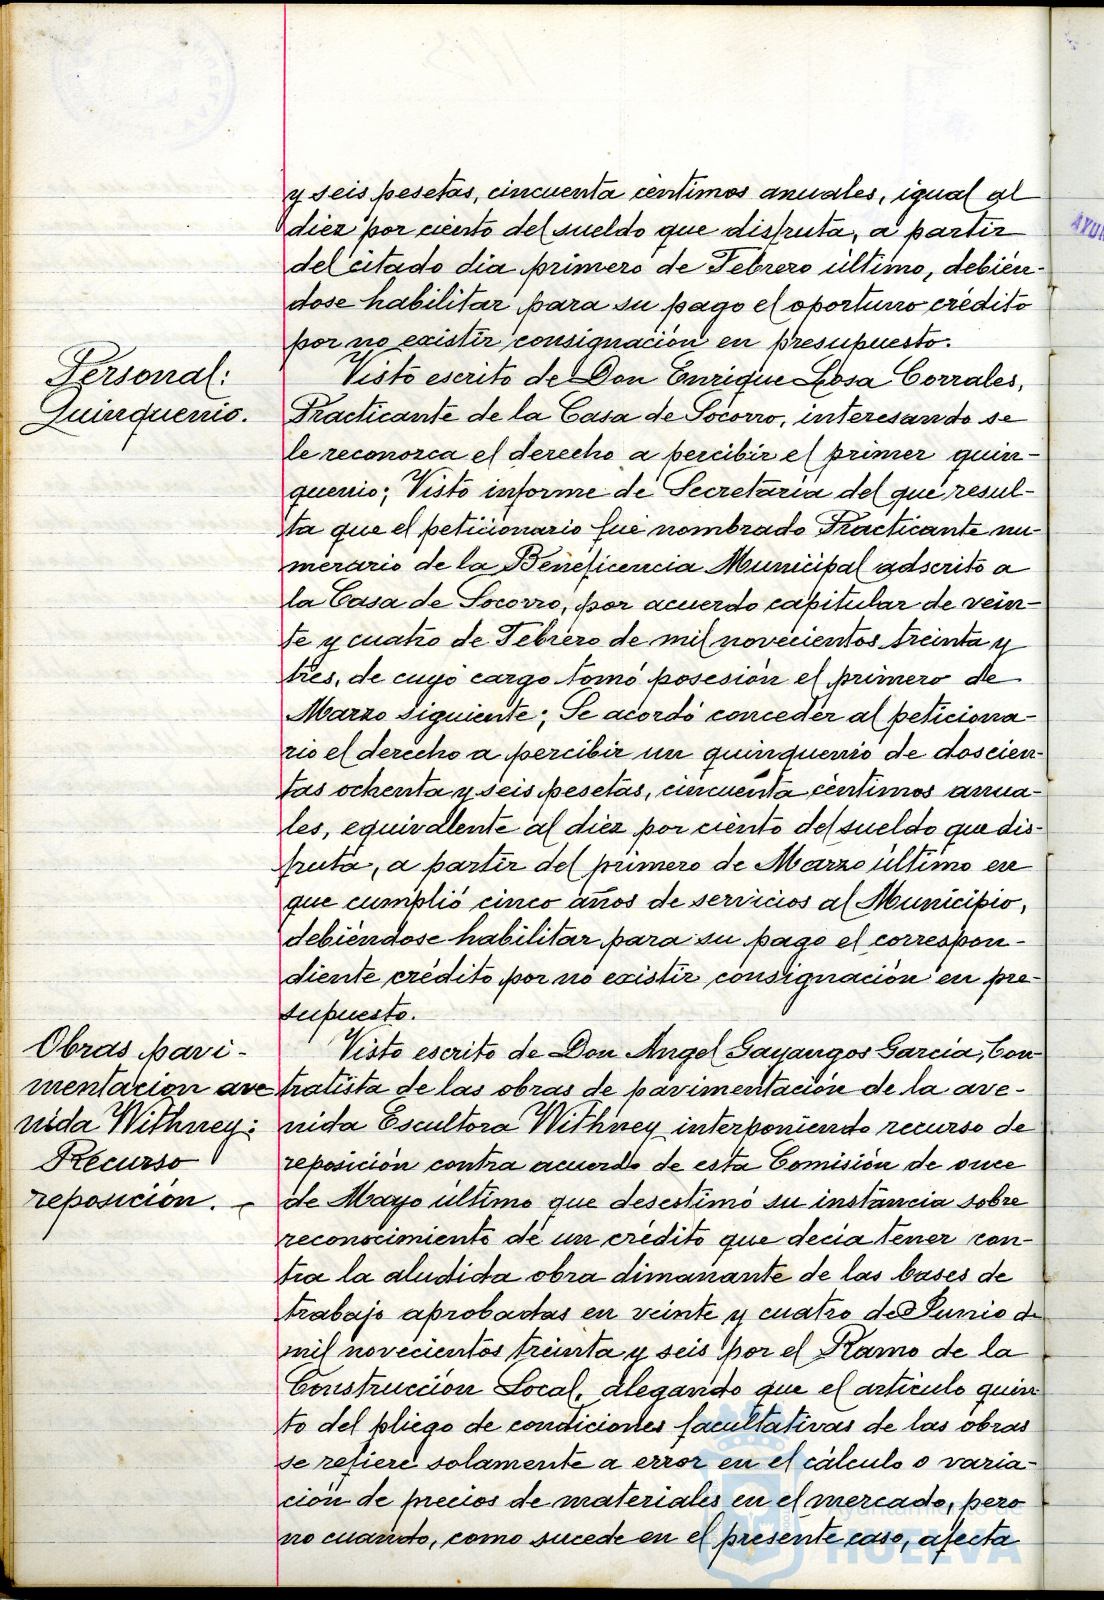 y seis pesetas, cincuenta céntimos anuales, igual al
diez por ciento del sueldo que disfruta, a partir
del citado dia primero de Febrero último, debién-
dose habilitar para su pago el oportuno crédito
por no existir consignación en presupuesto.
Personal:
Quinquenio.
Visto escrito de Don Enrique Sosa Corrales,
Practicante de la Casa de Socorro, interesando se
le reconozca el derecho a percibir el primer quin-
quenio; Visto informe de Secretaría del que resul-
ta que el peticionario fué nombrado Practicante nu-
merario de la Beneficencia Municipal adscrito a
la Casa de Socorro, por acuerdo capitular de vein-
te y cuatro de Febrero de mil novecientos treinta y
tres, de cuyo cargo tomó posesión el primero de
Marzo siguiente; Se acordó conceder al peticiona-
rio el derecho a percibir un quinquenio de doscien-
tas ochenta y seis pesetas, cincuenta céntimos anua-
les, equivalente al diez por ciento del sueldo que dis-
fruta, a partir del primero de Marzo último en
que cumplió cinco años de servicios al Municipio,
debiéndose habilitar para su pago el correspon-
diente crédito por no existir consignación en pre-
supuesto.
Obras pavi-
mentacion ave
nida Withney:
Recurso
reposición. -
Visto escrito de Don Angel Gayangos García, Con-
tratista de las obras de pavimentación de la ave-
nida Escultora Withney interponiendo recurso de
reposición contra acuerdo de esta Comisión de once
de Mayo último que desestimó su instancia sobre
reconocimiento de un crédito que decia tener con-
tra la aludida obra dimanante de las bases de
trabajo aprobadas en veinte y cuatro de Junio de
mil novecientos treinta y seis por el Ramo de la
Construcción Local, alegando que el artículo quin
to del pliego de condiciones facultativas de las obras
se refiere solamente a error en el cálculo o varia-
ción de precios de materiales en el mercado, pero
no cuando, como sucede en el presente caso, afecta
Ayuntamiento de
HUELVA